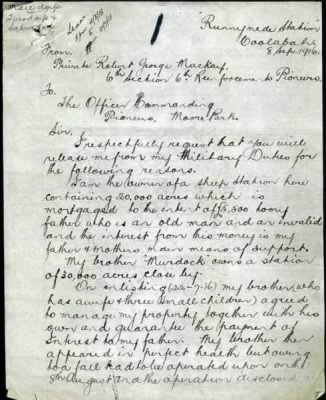 "Runnymede Station"
Coolabah
8 Sep. 1916.
From.
Private Robert George Mackay.
6th Section 6th Reinforcements Pioneers.
To.
The Officer Commanding
Pioneers, Moore Park.
Sir,
I respectfully request that you will
release me from my Military Duties for
the following reasons.
I am the owner of a sheep station here
containing 20,000 acres which is
mortgaged to the extent of £ to my
father who is an old man and an invalid
and the interest from this money is my
father & mothers main means of support.
My brother Murdock owns a station
of 30,000 acres close by.
On enlisting (22-7-16) my brother (who
has a wife & three small children) agreed
to manage my property together with his
own and guarantee the payment of
Interest to my father. My brother then
appeared in perfect health but owing
to a fall had to be operated upon on the
8th August and the operation disclosed